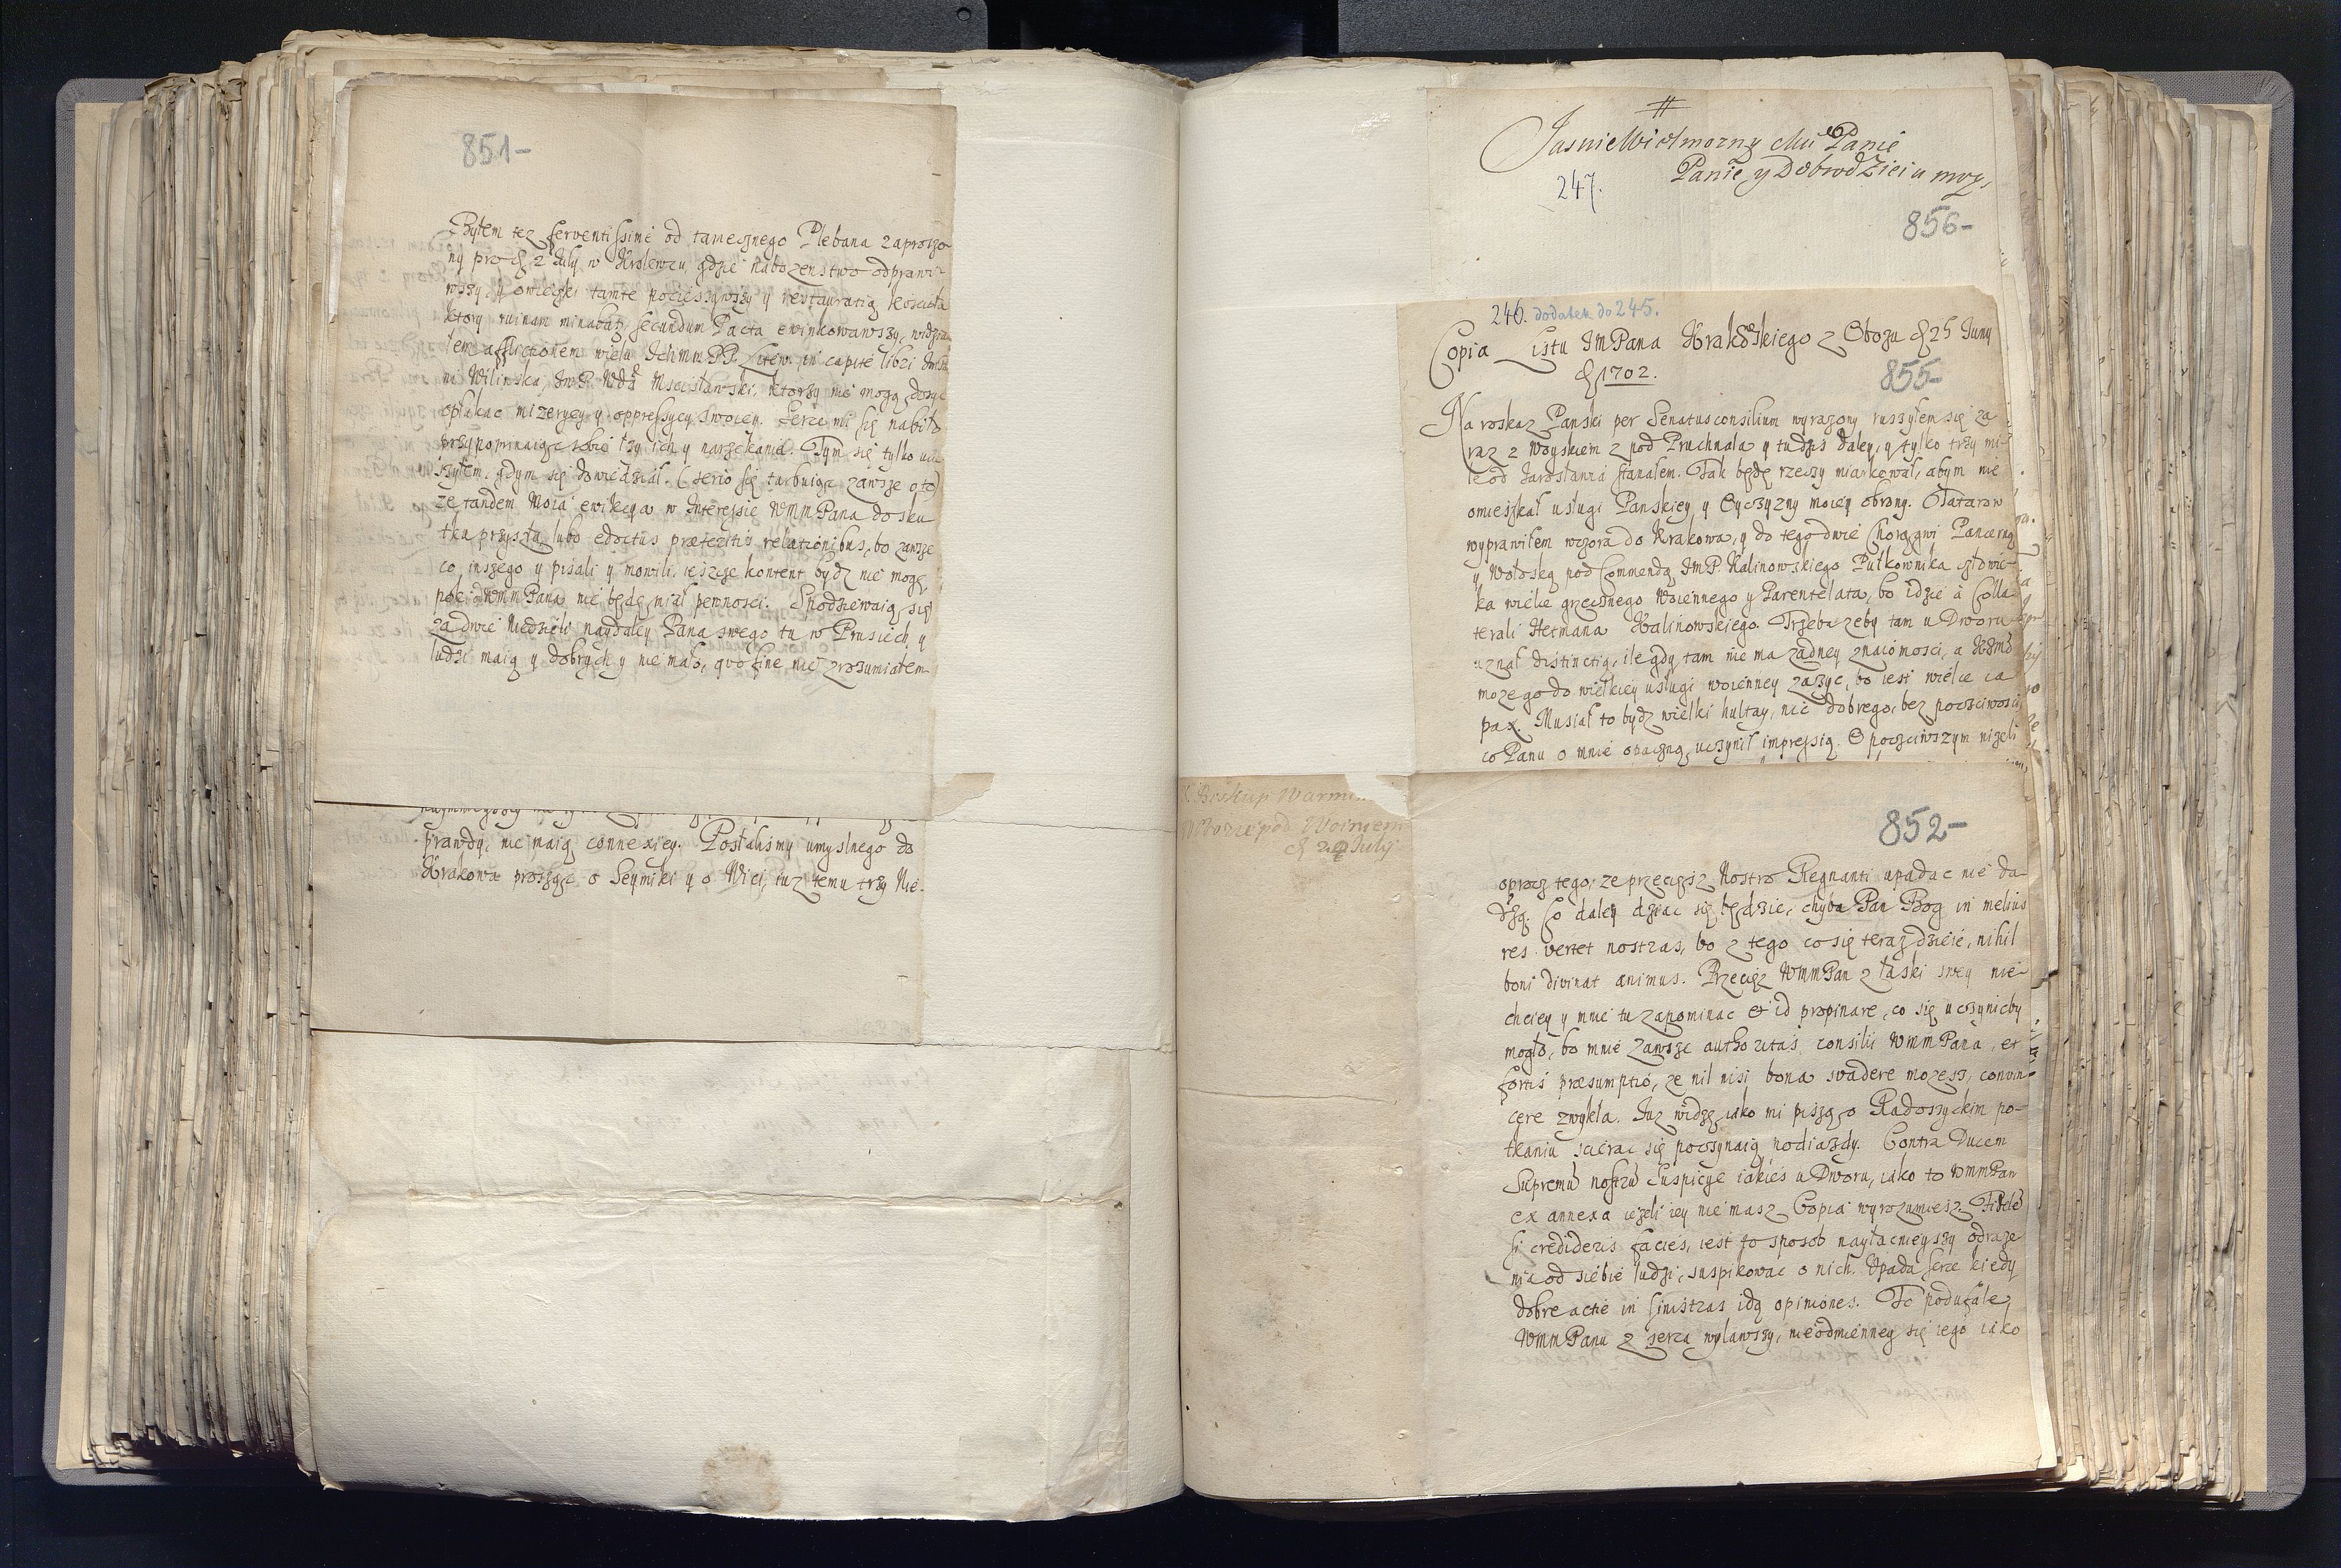 851-
Byłem tez ferventissime od tamecznego Plebana zaproszo-
ny pro d. 2 July w Krolewcu, gdzie nabozenstwo odprawi-
wszy, y owieczki tamte pocieszywszy y restauratią koscioła
ktory ruinam minabat, secundum Pacta ewinkowawszy, widzia-
łem afflictionem wielu Ichmm PP. Litew. in capite libri
ni Wilinska, ImP. Wda Mscisławski, ktorzy nie mogą dosyc
opłakac mizeryey y oppressyey swoiey. Serce mi się nabiło
przypominaiąc sobie łzy ich y narzekania. Tym się tylko ucie
szyłem, gdym się dowiedział, (serio się turbuiąc zawsze o to)
ze tandem Moia ewikcya w Interessie WmmPana do sku
tku przyszła, lubo edoctus præteritis relationibus, bo zawsze
co inszego y pisali y mowili, ieszcze kontent bydz nie mogę
poki od WmmPana nie będę miał pewnosci. Spodziewaią się
za dwie Niedzieli naydaley Pana swego tu w Prusiech, y
ludzi maią y dobrych y nie mało, quo fine nie zrozumiałem
prawdy, nie maią connexiey. Posłalismy umyslnego do
Krakowa prosząc o Seymiki y o Wici, iuz temu trzy Nie-
#
JasnieWielmozny Mci Panie
Panie y Dobrodzieiu moy,
247.
856-
246. dodatek do 245.
Copia Listu ImPana Krakowskiego z Obozu d. 25 Juny
d. 1702.
855-
Na roskaz Panski per Senatusconsilium wyrazony ruszyłem się za
raz z Woyskiem z pod Pruchnala y tudzis daley, y tylko trzy mi-
le od Jarosławia stanałem. Tak będę rzeczy miarkował, abym nie
omieszkał usługi Panskiey y Oyczyzny moiey obrony. Tatarow
wyprawiłem wczora do Krakowa, y do tego dwie Chorągwi Pancerną
y Wołoską pod Commendą ImP. Kalinowskiego Pułkownika człowie-
ka wielce grzecznego Woiennego y Parentelata, bo idzie a Colla-
terali Hetmana Kalinowskiego. Trzeba zeby tam u Dworu
uznał distinctią, ile gdy tam nie ma zadney znaiomosci, a
moze go do wielkiey usługi woienney zazyc, bo iest wielce ca
pax. Musiał to bydz wielki hultay, nic dobrego, bez poczciwosci
co Panu o mnie opaczną uczynił impressią. O poczciwszym nizeli
X. Biskup Warmin
W Obozie pod Woiniem
d. 24 July
852-
oprocz tego, ze przeciesz Nostro Regnanti upadac nie da-
dzą. Co daley dziac się będzie, chyba Pan Bog in melius
res vertet nostras, bo z tego co się teraz dzieie, nihil
boni divinat animus. Przecięz WmmPan z łaski swey nie
chciey y mnie tu zapominac et id propinare, co się uczynicby
mogło, bo mnie zawsze authoritas consilii WmmPana, et
fortis præsumptio, ze nil nisi bona svadere mozesz, convin-
cere zwykła. Iuz widzę iako mi piszą o Radoszyckim po-
tkaniu scierac się poczynaią podiazdy. Contra Ducem
Supremu nostru Suspicye iakies u Dworu, iako to WmmPan
ex annexa iezeli iey nie masz Copia wyrozumiesz. Fidele
si credideris facies, iest to sposob nayłacnieyszy odraze
nia od siebie ludzi, suspikowac o nich. Upada serce kiedy
dobre actie in sinistras idą opiniones. To poduf​ale
WmmPanu z serca wylawszy, nieodmienney się iego iako